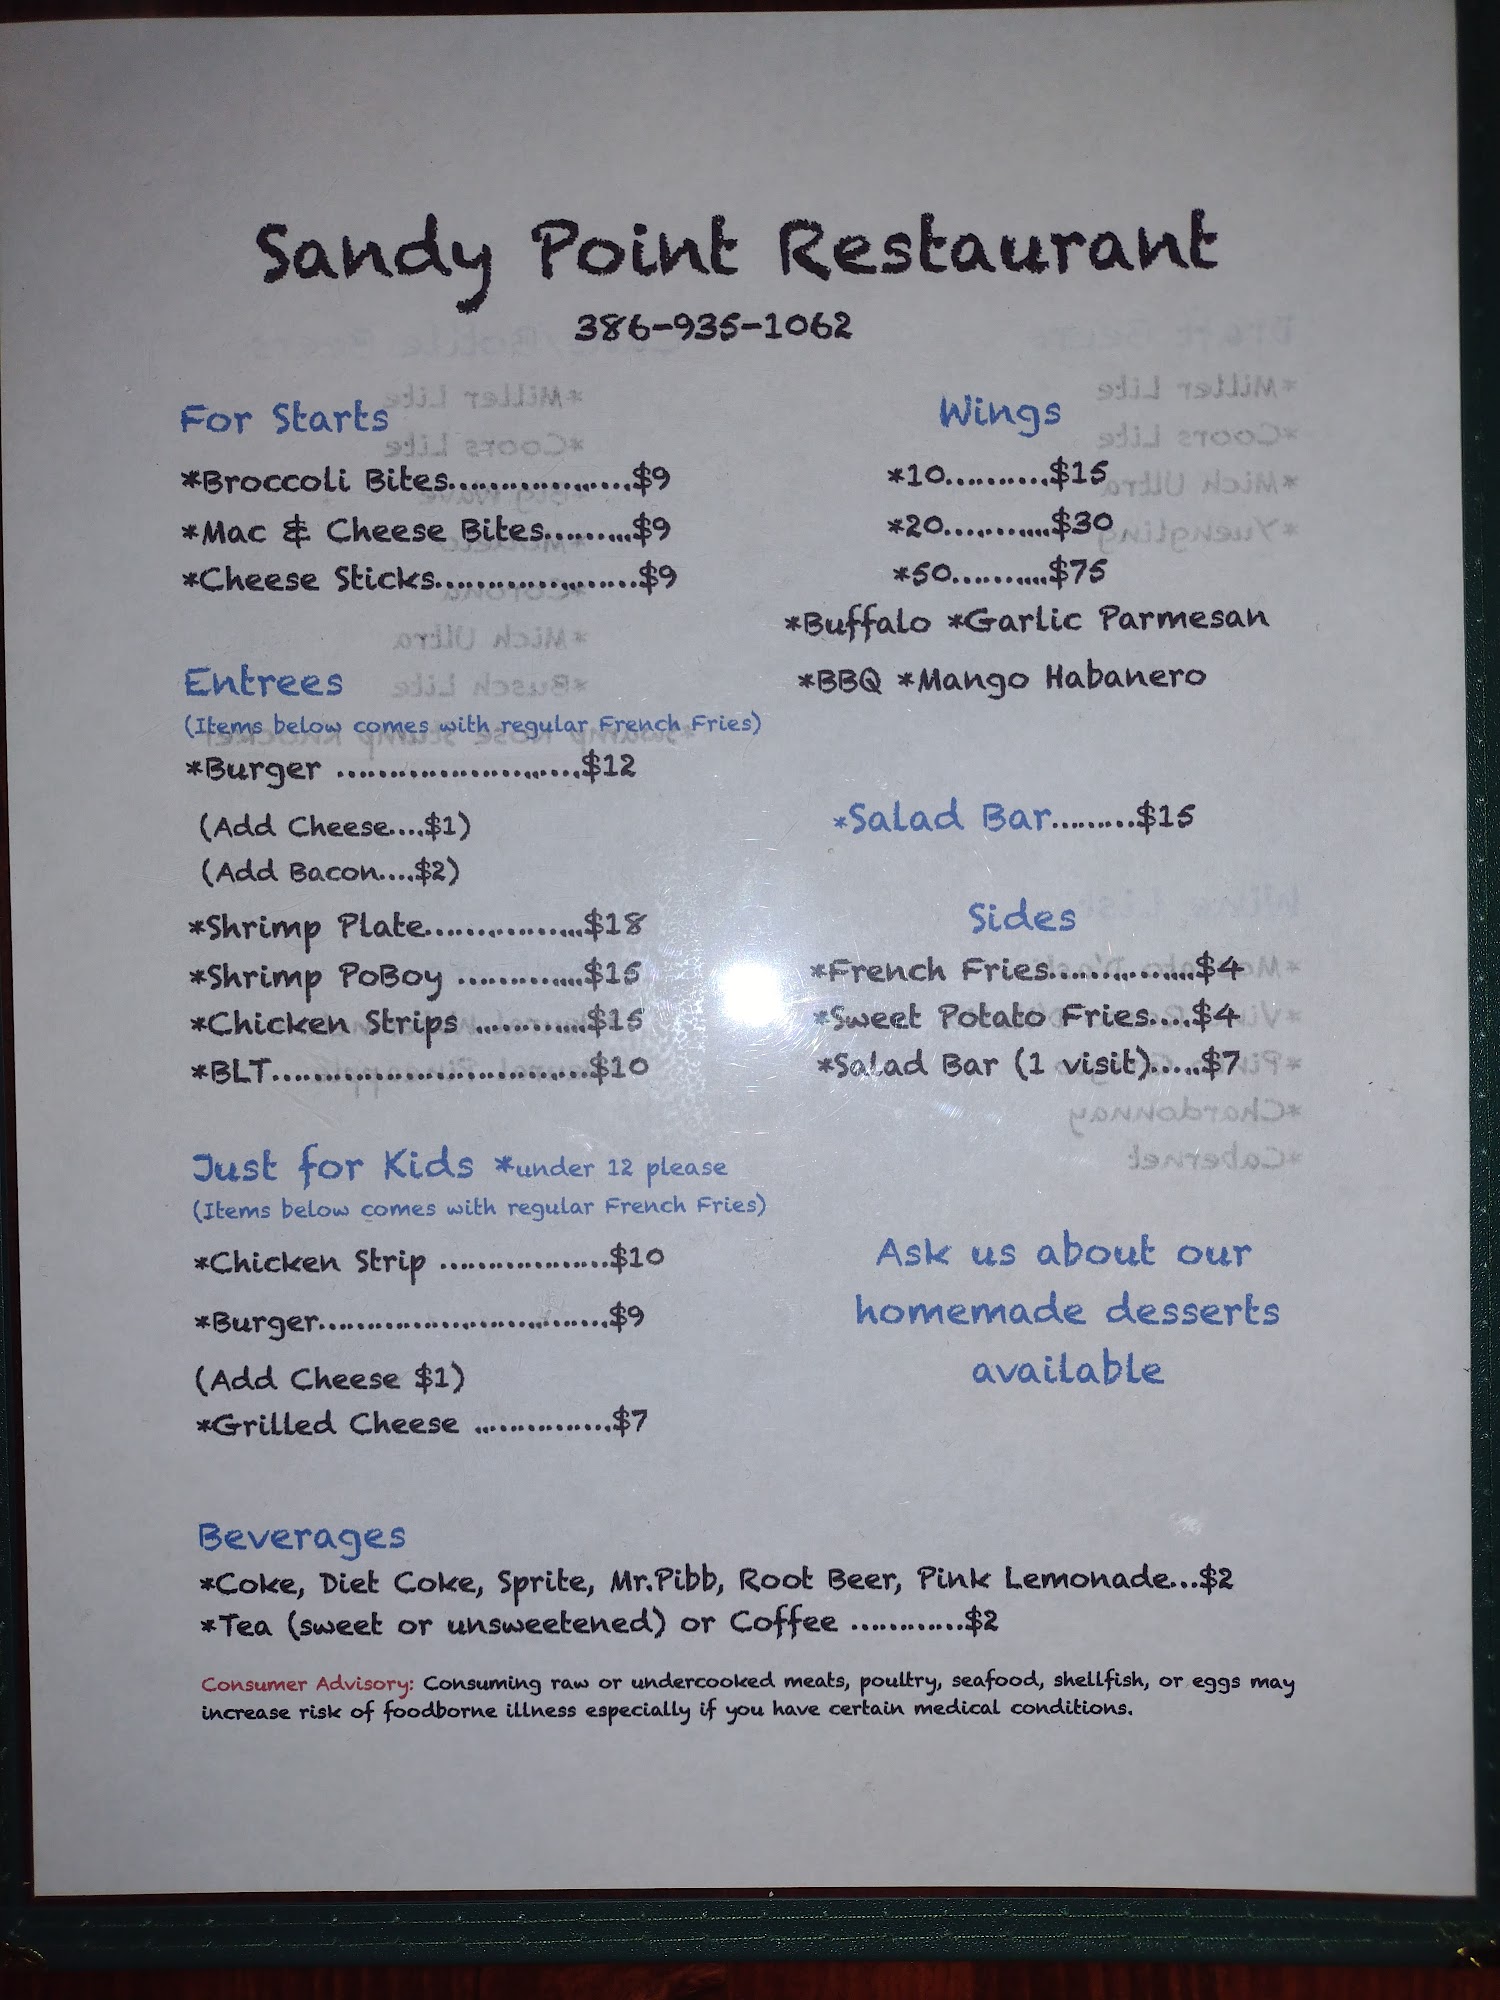 Sandy Point Restaurant
386-935-1062
For Starts
*Broccoli Bites......................$9
*Mac & Cheese Bites.........$9
*Cheese Sticks.......................$9
Entrees
(Items below comes with regular French Fries)
*Burger ..........................$12
(Add Cheese....$1)
(Add Bacon....$2)
*Shrimp Plate..................$18
*Shrimp PoBoy ..............$15
*Chicken Strips .............$15
*BLT..................................$10
Just for Kids *under 12 please
(Items below comes with regular French Fries)
*Chicken Strip ...................$10
*Burger................................$9
(Add Cheese $1)
*Grilled Cheese ................$7
Wings
*10...........$15
*20............$30
*50...........$75
*Buffalo *Garlic Parmesan
*BBQ *Mango Habanero
*Salad Bar.........$15
Sides
*French Fries.................$4
*Sweet Potato Fries....$4
*Salad Bar (1 visit)......$7
Ask us about our
homemade desserts
available
Beverages
*Coke, Diet Coke, Sprite, Mr.Pibb, Root Beer, Pink Lemonade...$2
*Tea (sweet or unsweetened) or Coffee ............$2
Consumer Advisory: Consuming raw or undercooked meats, poultry, seafood, shellfish, or eggs may
increase risk of foodborne illness especially if you have certain medical conditions.